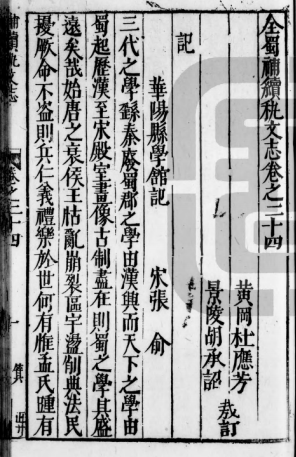 全蜀補續秇文志卷之三十四
黃岡杜應芳
景陵胡承詔 裁訂
記
華陽縣學館記 宋張俞
三代之學繇秦廢蜀郡之學由漢興而天下之學由
蜀起歷漢至宋殿室畫像古制盡在則蜀之學其盛
遠矣哉始唐之衰侯王怙亂崩裂區宇盪削典法民
擾厥命不盗則兵仁義禮樂於世何有惟孟氏踵有
補續秇文志
卷之三十四
一